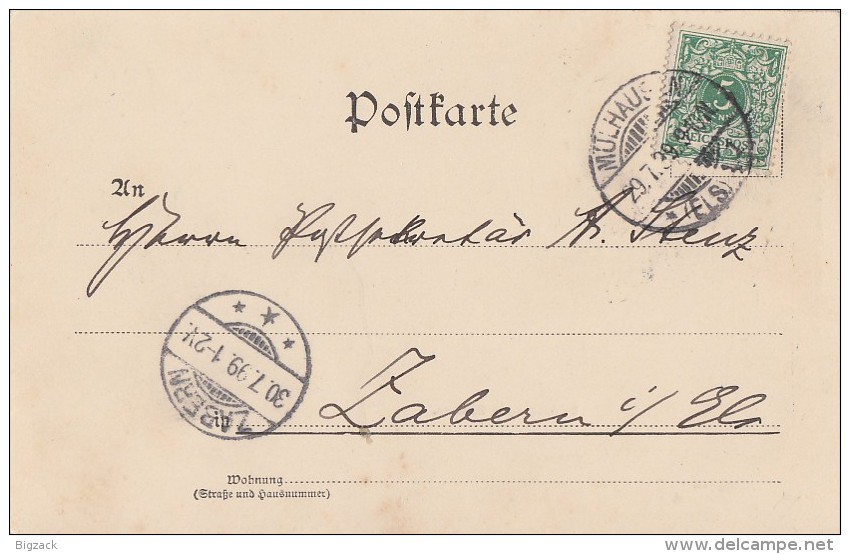 Postkarte
MÜLHAUSEN
29.7.99. 8-9 N.
* (ELS)
5
REICHSPOST
An
Herrn Postsekretär A. Stenz
ZABERN
30.7.99. 1-2V.
* * *
in Zabern i/ Els
Wohnung
(Straße und Hausnummer)
Bigzack
delcampe.net